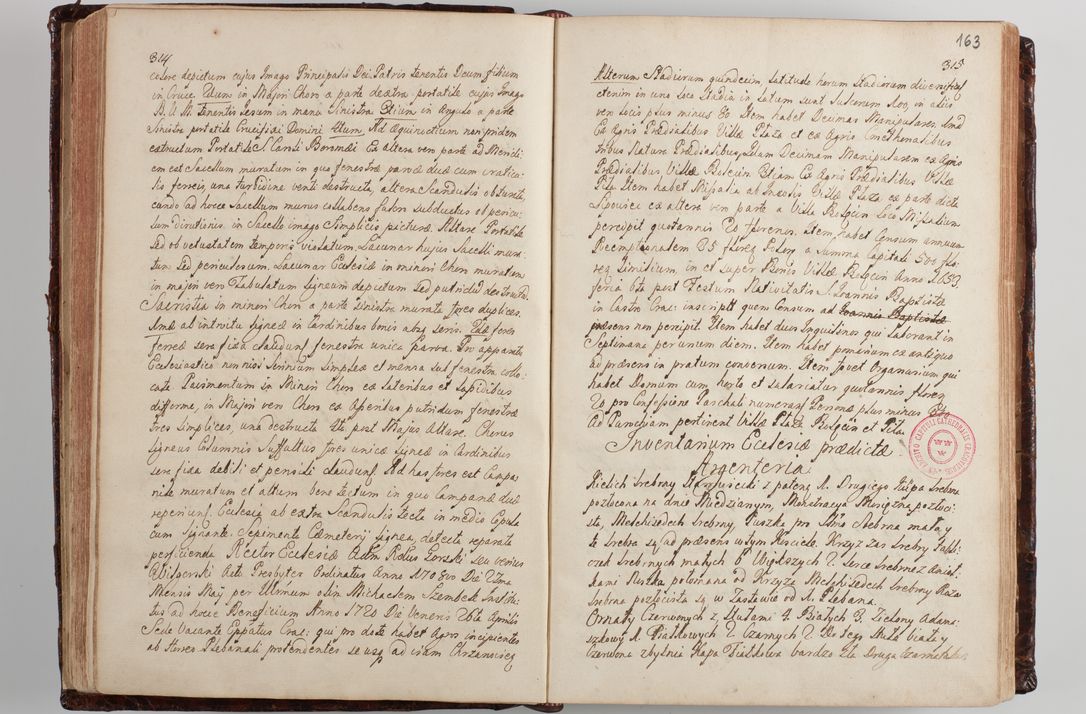 314
colore depictum cujus Imago Principalis Dei Patris tenentis Deum filium
in Cruce. 2dum in Majori Choro a parte dextra portatile cujus Imago
B. V. M. tenentis Jesum in manu Sinistra 3tium in Angulo a parte
Sinistra portatile Crucifixi Domini 4tum. Ad æquinoctium non pridem
extructum Portatile S. Caroli Boromæi Ex altera vero parte ad Meridi-
em est Sacellum muratum in quo fenestræ parvæ duæ cum craticu-
lis ferreis, una turbidine venti destructa, altera Scandulis obstructa,
eundo ad hocce Sacellum murus collabens fulcro subductus ob pericu-
lum dirutionis, in Sacello imago Simplicis picturæ. Altare Portatile
sed ob vetustatem temporis violatum, Lacunar hujus Sacelli mura-
tum sed periculosum. Lacunar Ecclesiæ in minori Choro muratum
in majori vero Tabulatum ligneum depictum sed putridum destructum
Sacristia in minori Choro a parte sinistra murata fores duplices.
Unæ ab intuitu ligneæ in Cardinibus bonis absq seris. 2dæ fores
ferreæ sera fixa claudunt fenestra unica parva. Pro apparatu
Ecclesiastico non nisi Scrinium simplex et mensa sub fenestra collo-
cata Pavimentum in Minori Choro ex lateribus et lapidibus
difforme, in Majori vero Choro ex Asseribus putridum fenestræ
tres simplices, una destructa 4ta post Majus Altare. Chorus
ligneus Columnis suffultus fores unicæ ligneæ in Cardinibus
sera fixa debili et pensili claudunt. Ad has fores est Campa-
nile muratum et altum bene tectum in quo Campanæ duæ
reperiunt. Ecclesia ab extra Scandulis tecta in medio Cupula
cum Signante. Sepimenta Cæmeterij lignea, detecta separata
perficienda Rector Ecclesiæ Adm Rdus Gorski seu verius
Presbyter Ordinatus Anno 1708vo Die 2dma
Mensis Maij per Illmum olim Michaelem Szembek Institu-
tus ad hocce Beneficium Anno 1720 Die Veneris 26ta Aprilis
Sede Vacante Eppatus Crac: qui pro dote habet Agros incipientes
ab Horreo Plebanali protendentes se usq ad viam Krzanowicę

163
315
Alterum Stadiorum quindecim, latitudo horum stadiorum diversificat
etenim in uno loco stadia in latum sunt Sulcorum 100, in alio
vero loco plus minus 80 Item habet Decimas Manipulares Imo
Ex Agris Prædialibus Villæ Płaza et ex Agris Cmethonalibus
tribus Naturæ Prædialibus. 2dam Decimam Manipularem ex Agris
Prædialibus Villæ Bolęcin 3tiam Ex Agris Prædialibus Villæ
Piła Item habet Missalia ab Incolis Villæ Płaza ex parte dicta
Lipowiec ex altera vero parte a Villa Bolęcin Loco Missalium
percipit quotannis 20 florenos. Item habet Censum annuum
Reemptionalem 35 floren Polon a Summa Capitali 500 flo-
ren similium, in et super Bonis Villæ Bolęcin Anno 1653
feria 6ta post Festum Nativitatis S. Joannis Baptistæ
in Castro Crac: inscripti quem Censum ad Joannis Baptistæ
præsens non percipit. Item habet duos Inquilinos qui laborant in
Septimana per unum diem. Item habet pomarium ex antiquo
ad præsens in pratum conversum. Item fovet Organarium qui
habet Domum cum horto et salariatur quotannis floren
20 pro Confessione Paschali numerant Personæ plus minus
Ad Parochiam pertinent Villæ Płaza Bolęcin et Piła
Inventarium Ecclesiæ prædictæ
Argenteria
Kielich Srebrny Staroswiecki z pateną 1. Drugiego Kupa Srebrna
pozłocona na dnie Miedzianym, Monstracya Mosięzna pozłoci-
sta, Melchizedech Srebrny, Puszka pro Ssmo Srebrna mała, y
te Srebra są ad præsens w tym Kosciele. Krzyz zas srebrny Tabli-
czek Srebrnych małych 6 Większych 2. Serce srebrne z dwiat-
kami Puszka połamana od Krzyza Melchizedech Srebrny
Srebrna pozłocista są w Zastawie od X. Plebana.
Ornaty Czerwonych z Stułami 4. Białych 3. Zielony Adama-
szkowy 1. Fiałkowych 2. Czarnych 2. Do tego Stuła biała y
Czerwona zbytnia Kapa Fiałkowa bardzo zła Druga Czarna

EX ARCHIVO CAPITULI CATHEDRALIS CRACOVIENSIS